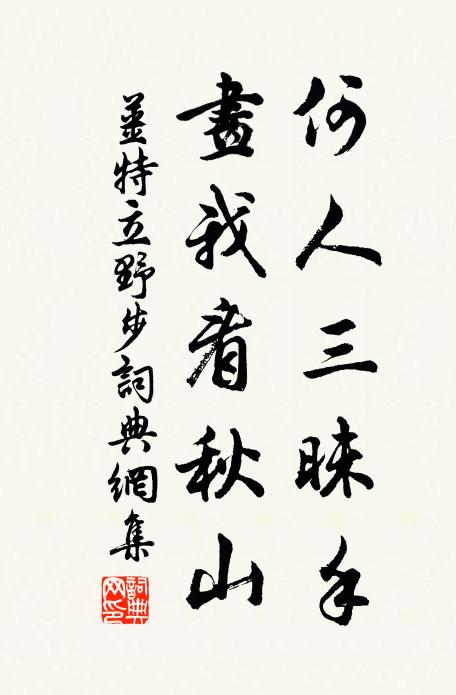 何人三昧手
畫我看秋山
姜特立野步詞典網集
詞典網印